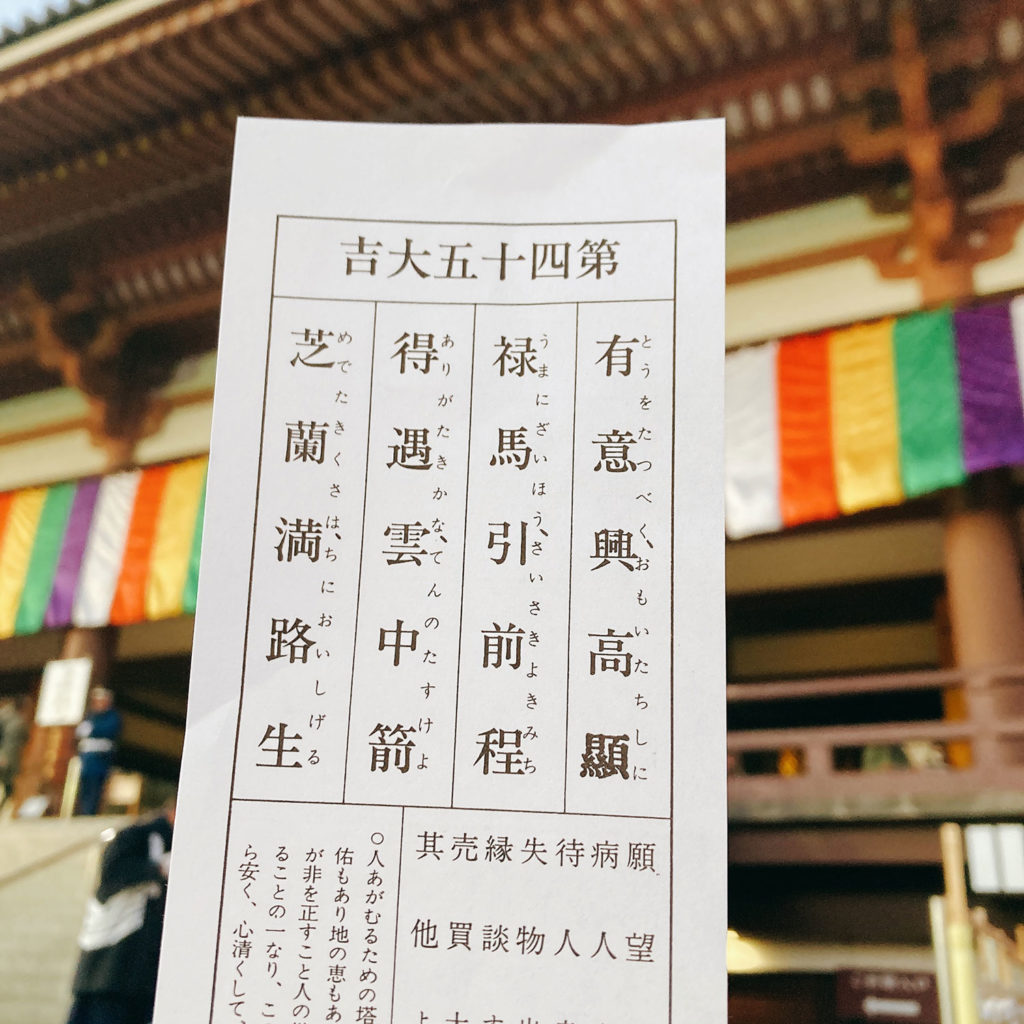 第四十五大吉
有意興高顯
とうをたつべく、おもいたちしに
禄馬引前程
うまにざいほう、さいさきよきみち
得遇雲中箭
ありがたきかな、てんのたすけよ
芝蘭満路生
めでたきくさは、ちにおいしげる
願望
病人
待人
失物
縁談
売買
其他
○人あがむるための塔
佑もあり地の恵もあ
が非を正すこと人の
ることの一なり、こ
ら安く、心清くして、